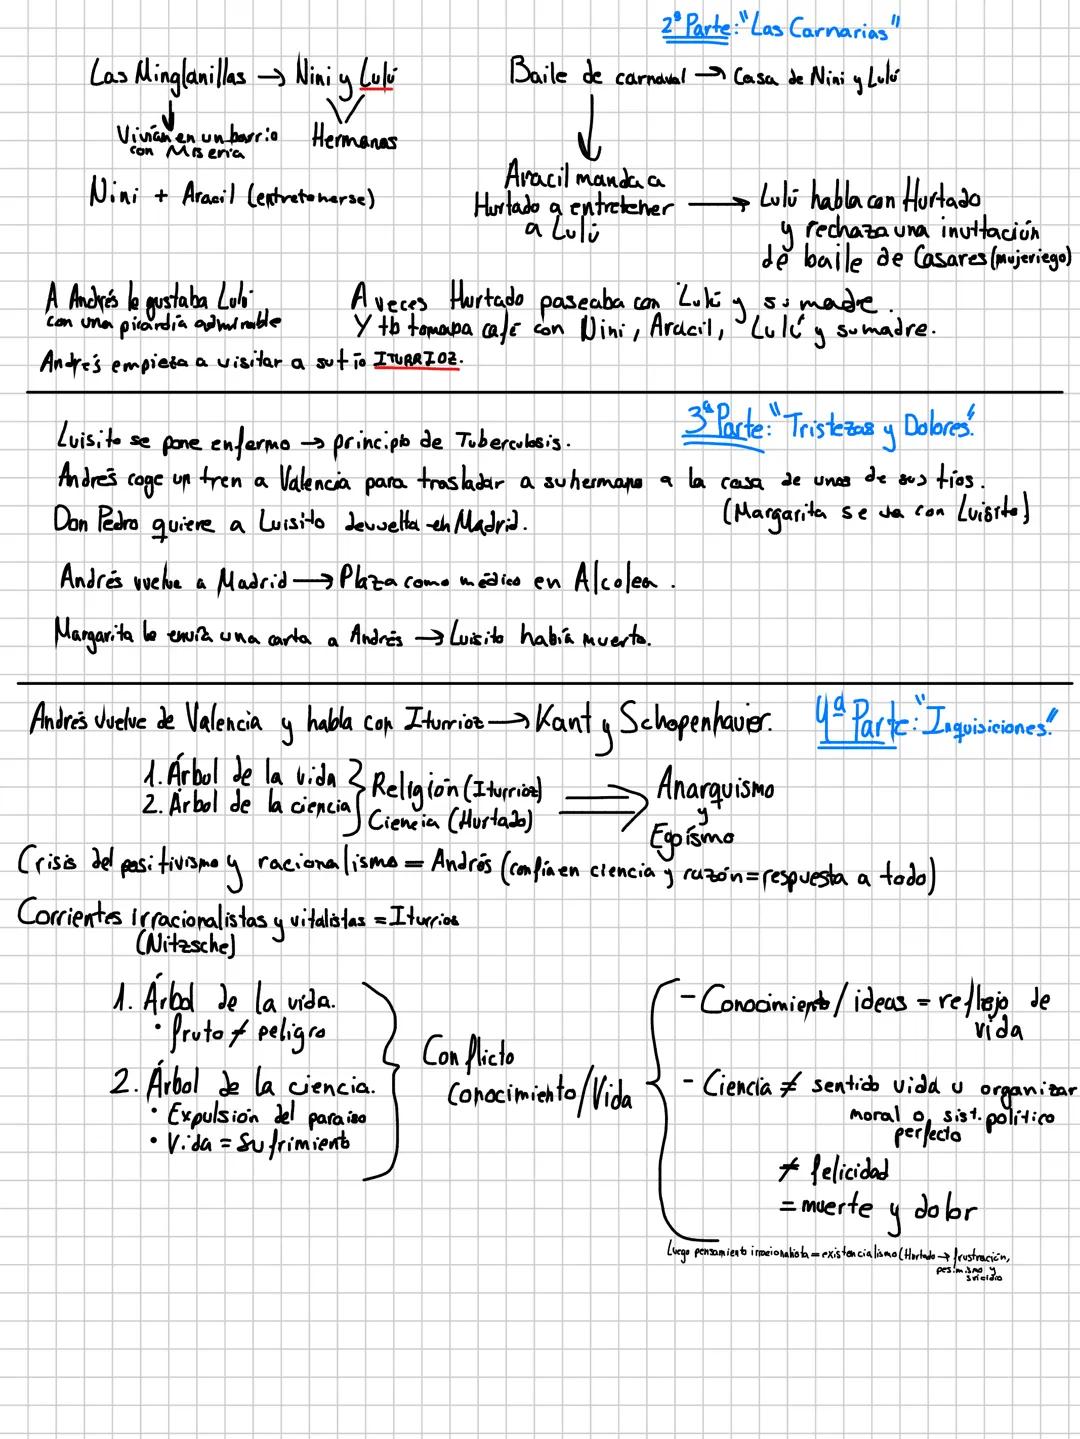 2ª Parte: "Las Carnarias"
Las Minglanillas → Nini y Lulú
Vivían en un barrio
con Miseria
Hermanas
Nini + Aracil (entretenerse)
Baile de carnaval → Casa de Nini y Lulú
Aracil manda a
Hurtado a entretener
a Lulú
→ Lulú habla con Hurtado
y rechaza una invitación
de baile de Casares (mujeriego)
A Andrés le gustaba Lulú
con una picardía admirable
A veces Hurtado paseaba con Lulú y su madre.
Y tb tomaba café con Nini, Aracil, Lulú y su madre.
Andrés empieza a visitar a su tío ITURRIOZ.
3ª Parte: "Tristezas y Dolores".
Luisito se pone enfermo → principio de Tuberculosis.
Andrés coge un tren a Valencia para trasladar a su hermano a la casa de unos de sus tíos.
(Margarita se va con Luisito)
Don Pedro quiere a Luisito devuelta en Madrid.
Andrés vuelve a Madrid → Plaza como médico en Alcolea.
Margarita le envía una carta a Andrés → Luisito había muerto.
4ª Parte: "Inquisiciones"
Andrés vuelve de Valencia y habla con Iturrioz → Kant y Schopenhauer.
1. Árbol de la vida
2. Árbol de la ciencia
Religión (Iturrioz)
Ciencia (Hurtado)
⇒ Anarquismo
y
Egoísmo
Crisis del positivismo y racionalismo = Andrés (confía en ciencia y razón = respuesta a todo)
Corrientes irracionalistas y vitalistas = Iturrios
(Nitzsche)
1. Árbol de la vida.
• fruto ≠ peligro
2. Árbol de la ciencia.
• Expulsión del paraiso
• Vida = Sufrimiento
Conflicto
Conocimiento/Vida
- Conocimiento/ideas = reflejo de
vida
- Ciencia ≠ sentido vida u organizar
moral o sist. político
perfecto
≠ felicidad
= muerte y dolor
Luego pensamiento irracionalista = existencialismo (Hurtado → frustración,
pesimismo y
suicidio